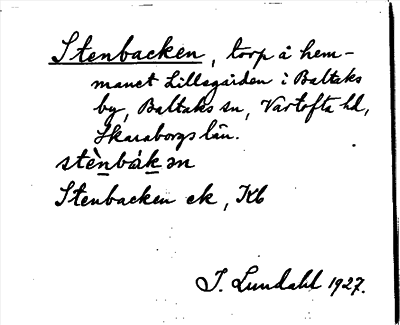 Stenbacken, torp å hem-
manet Lillegården i Baltaks
by, Baltaks sn, Vartofta hd,
Skaraborgs län.
stènbákən
Stenbacken ek, Kb
I. Lundahl 1927.